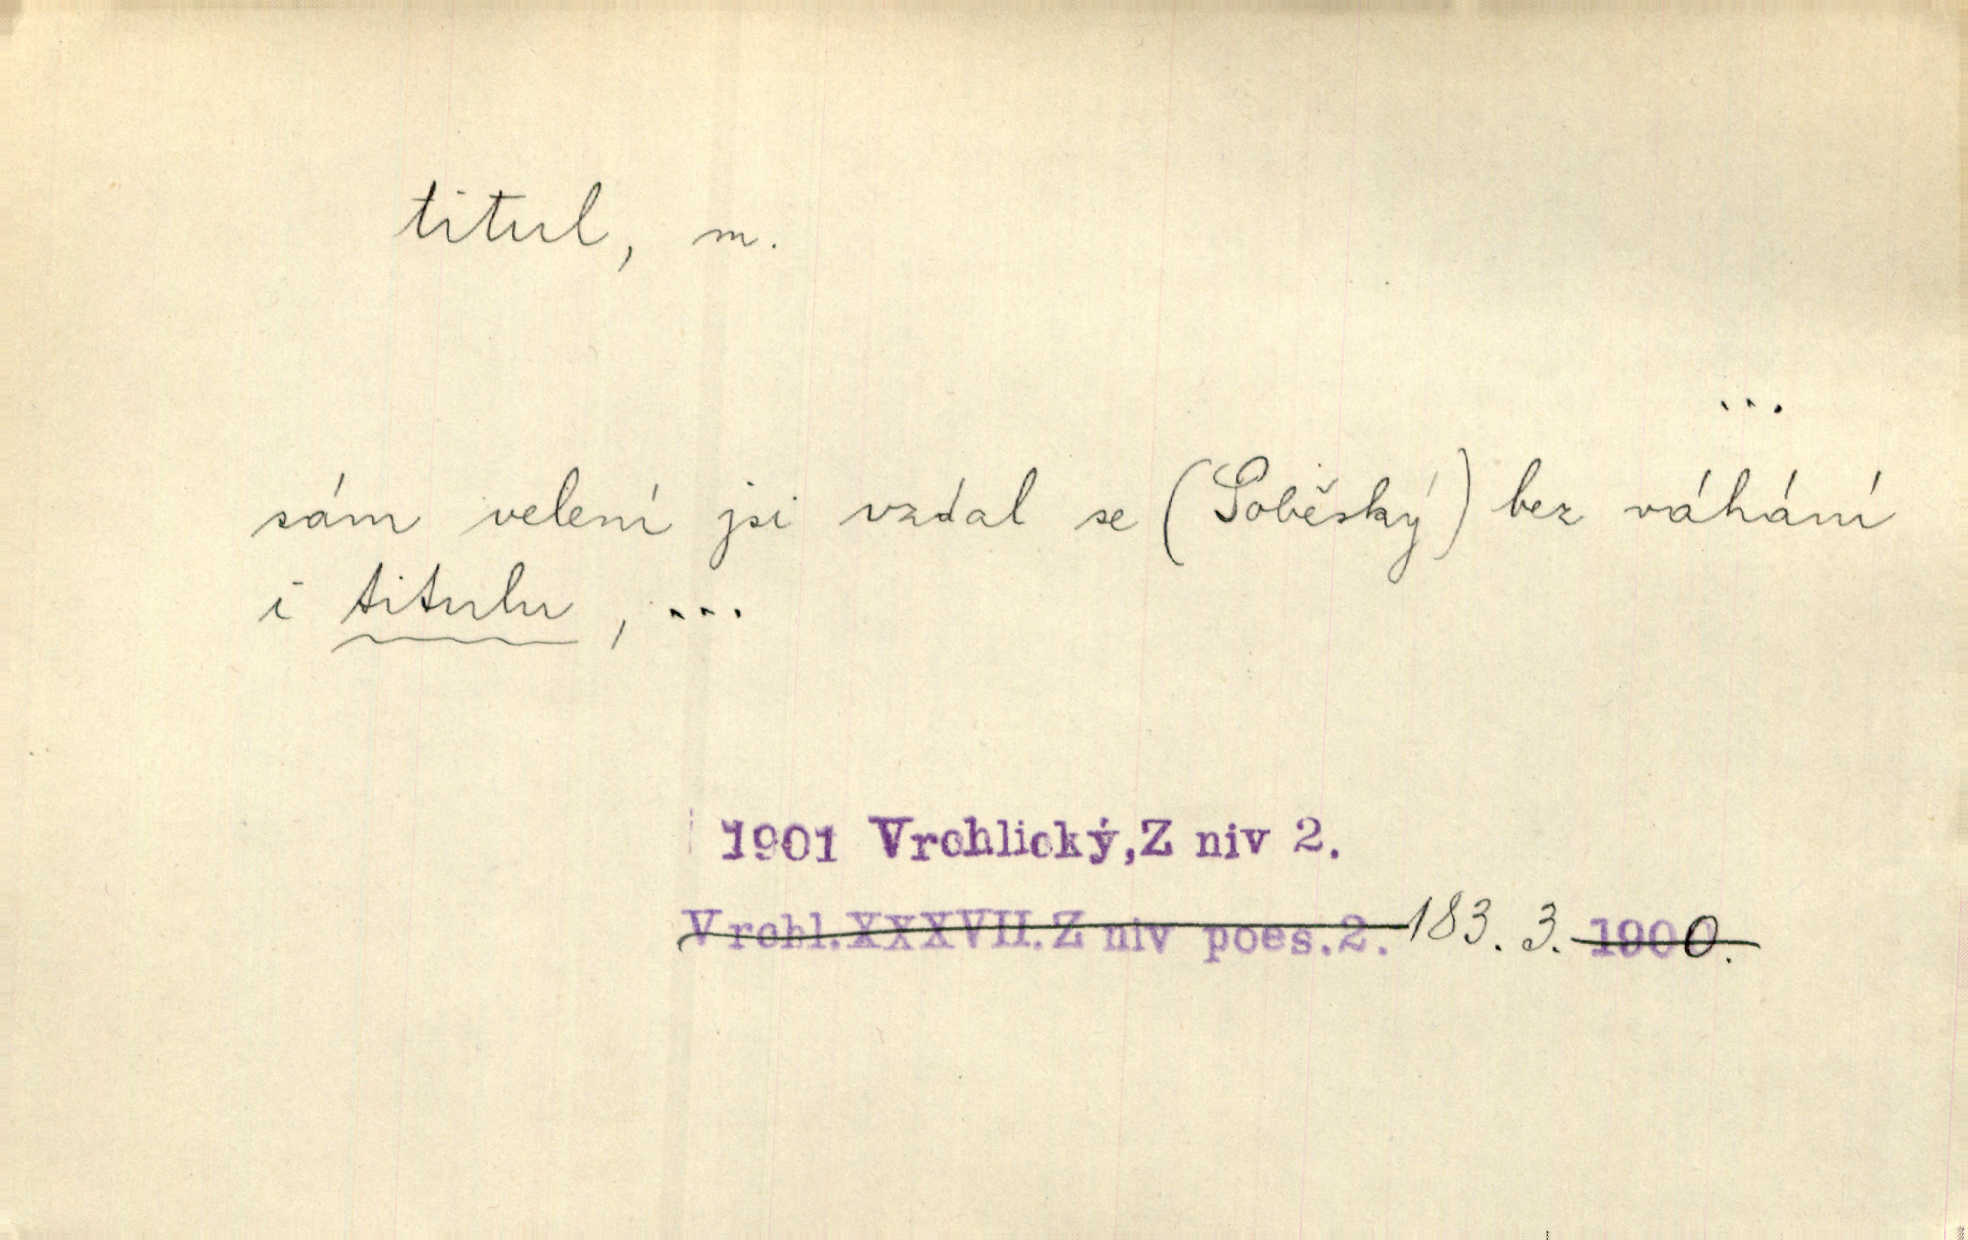 titul, m.
...
sám velení jsi vzdal se (Soběský) bez váhání
i titulu, ...
1901 Vrchlický,Z niv 2.
Vrchl.XXXVII.Z niv poes.2. 183. 3. 1900.